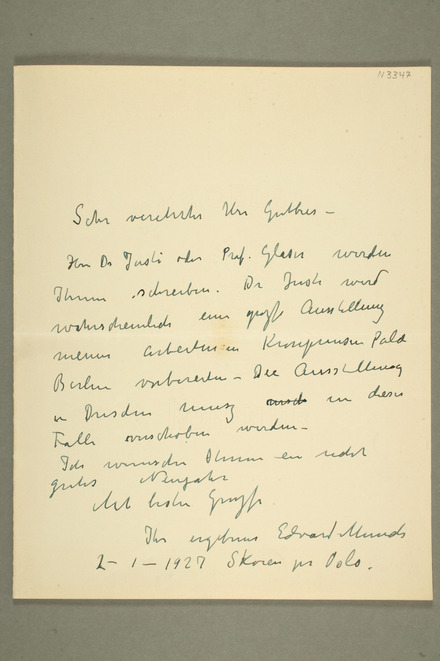 N3347
Sehr verehrter Herr Gutbier –
Herr Dr Justi oder Prof. Glaser werden
Ihnen schreiben. Dr Justi wird
wahrscheinlich eine grosse Ausstellung
meiner Arbeiten in Kronprinsen Pala
Berlin vorbereiten – Die Ausstellung
in Dresden muss in diesen
Falle verschoben werden –
Ich wünsche Ihnen ein recht
gutes Neujahr
Mit besten Grusse
Ihr ergebener Edvard Munch
2 – 1 – 1927 Skøien pr Oslo.